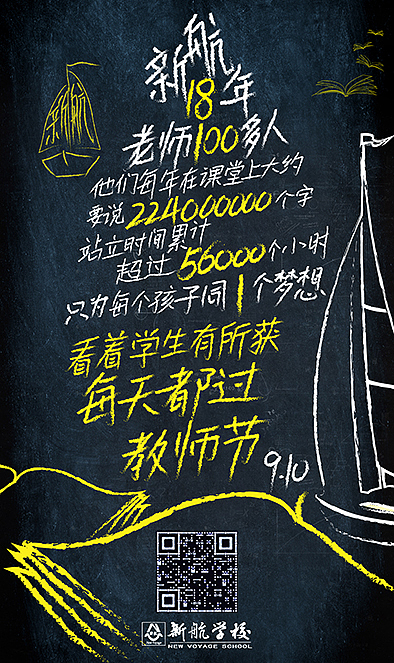 新航
新航
18年
老师100多人
他们每年在课堂上大约
要说224000000个字
站立时间累计
超过56000个小时
只为每个孩子同1个梦想
看着学生有所获
每天都过
教师节
9.10
新航学校
NEW VOYAGE SCHOOL